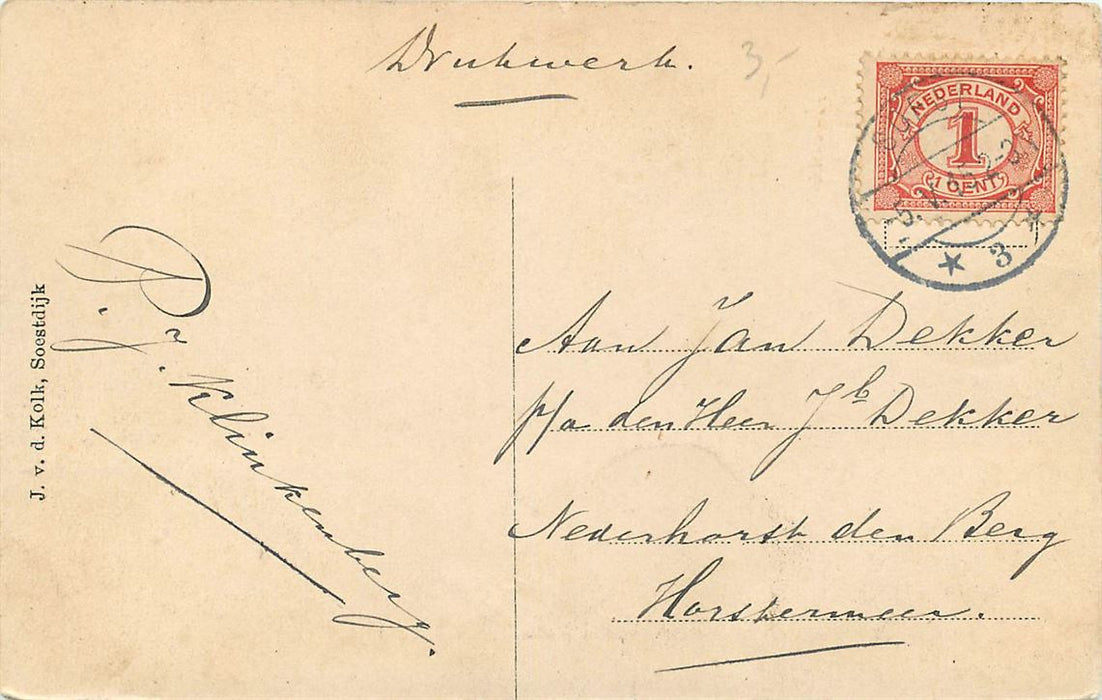 Drukwerk.
3,-
NEDERLAND
1
1 CENT
3
P. J. Klinkenberg.
J. v. d. Kolk, Soestdijk
Aan Jan Dekker
p/a den Heer Jb Dekker
Nederhorst den Berg
Horstermeer.